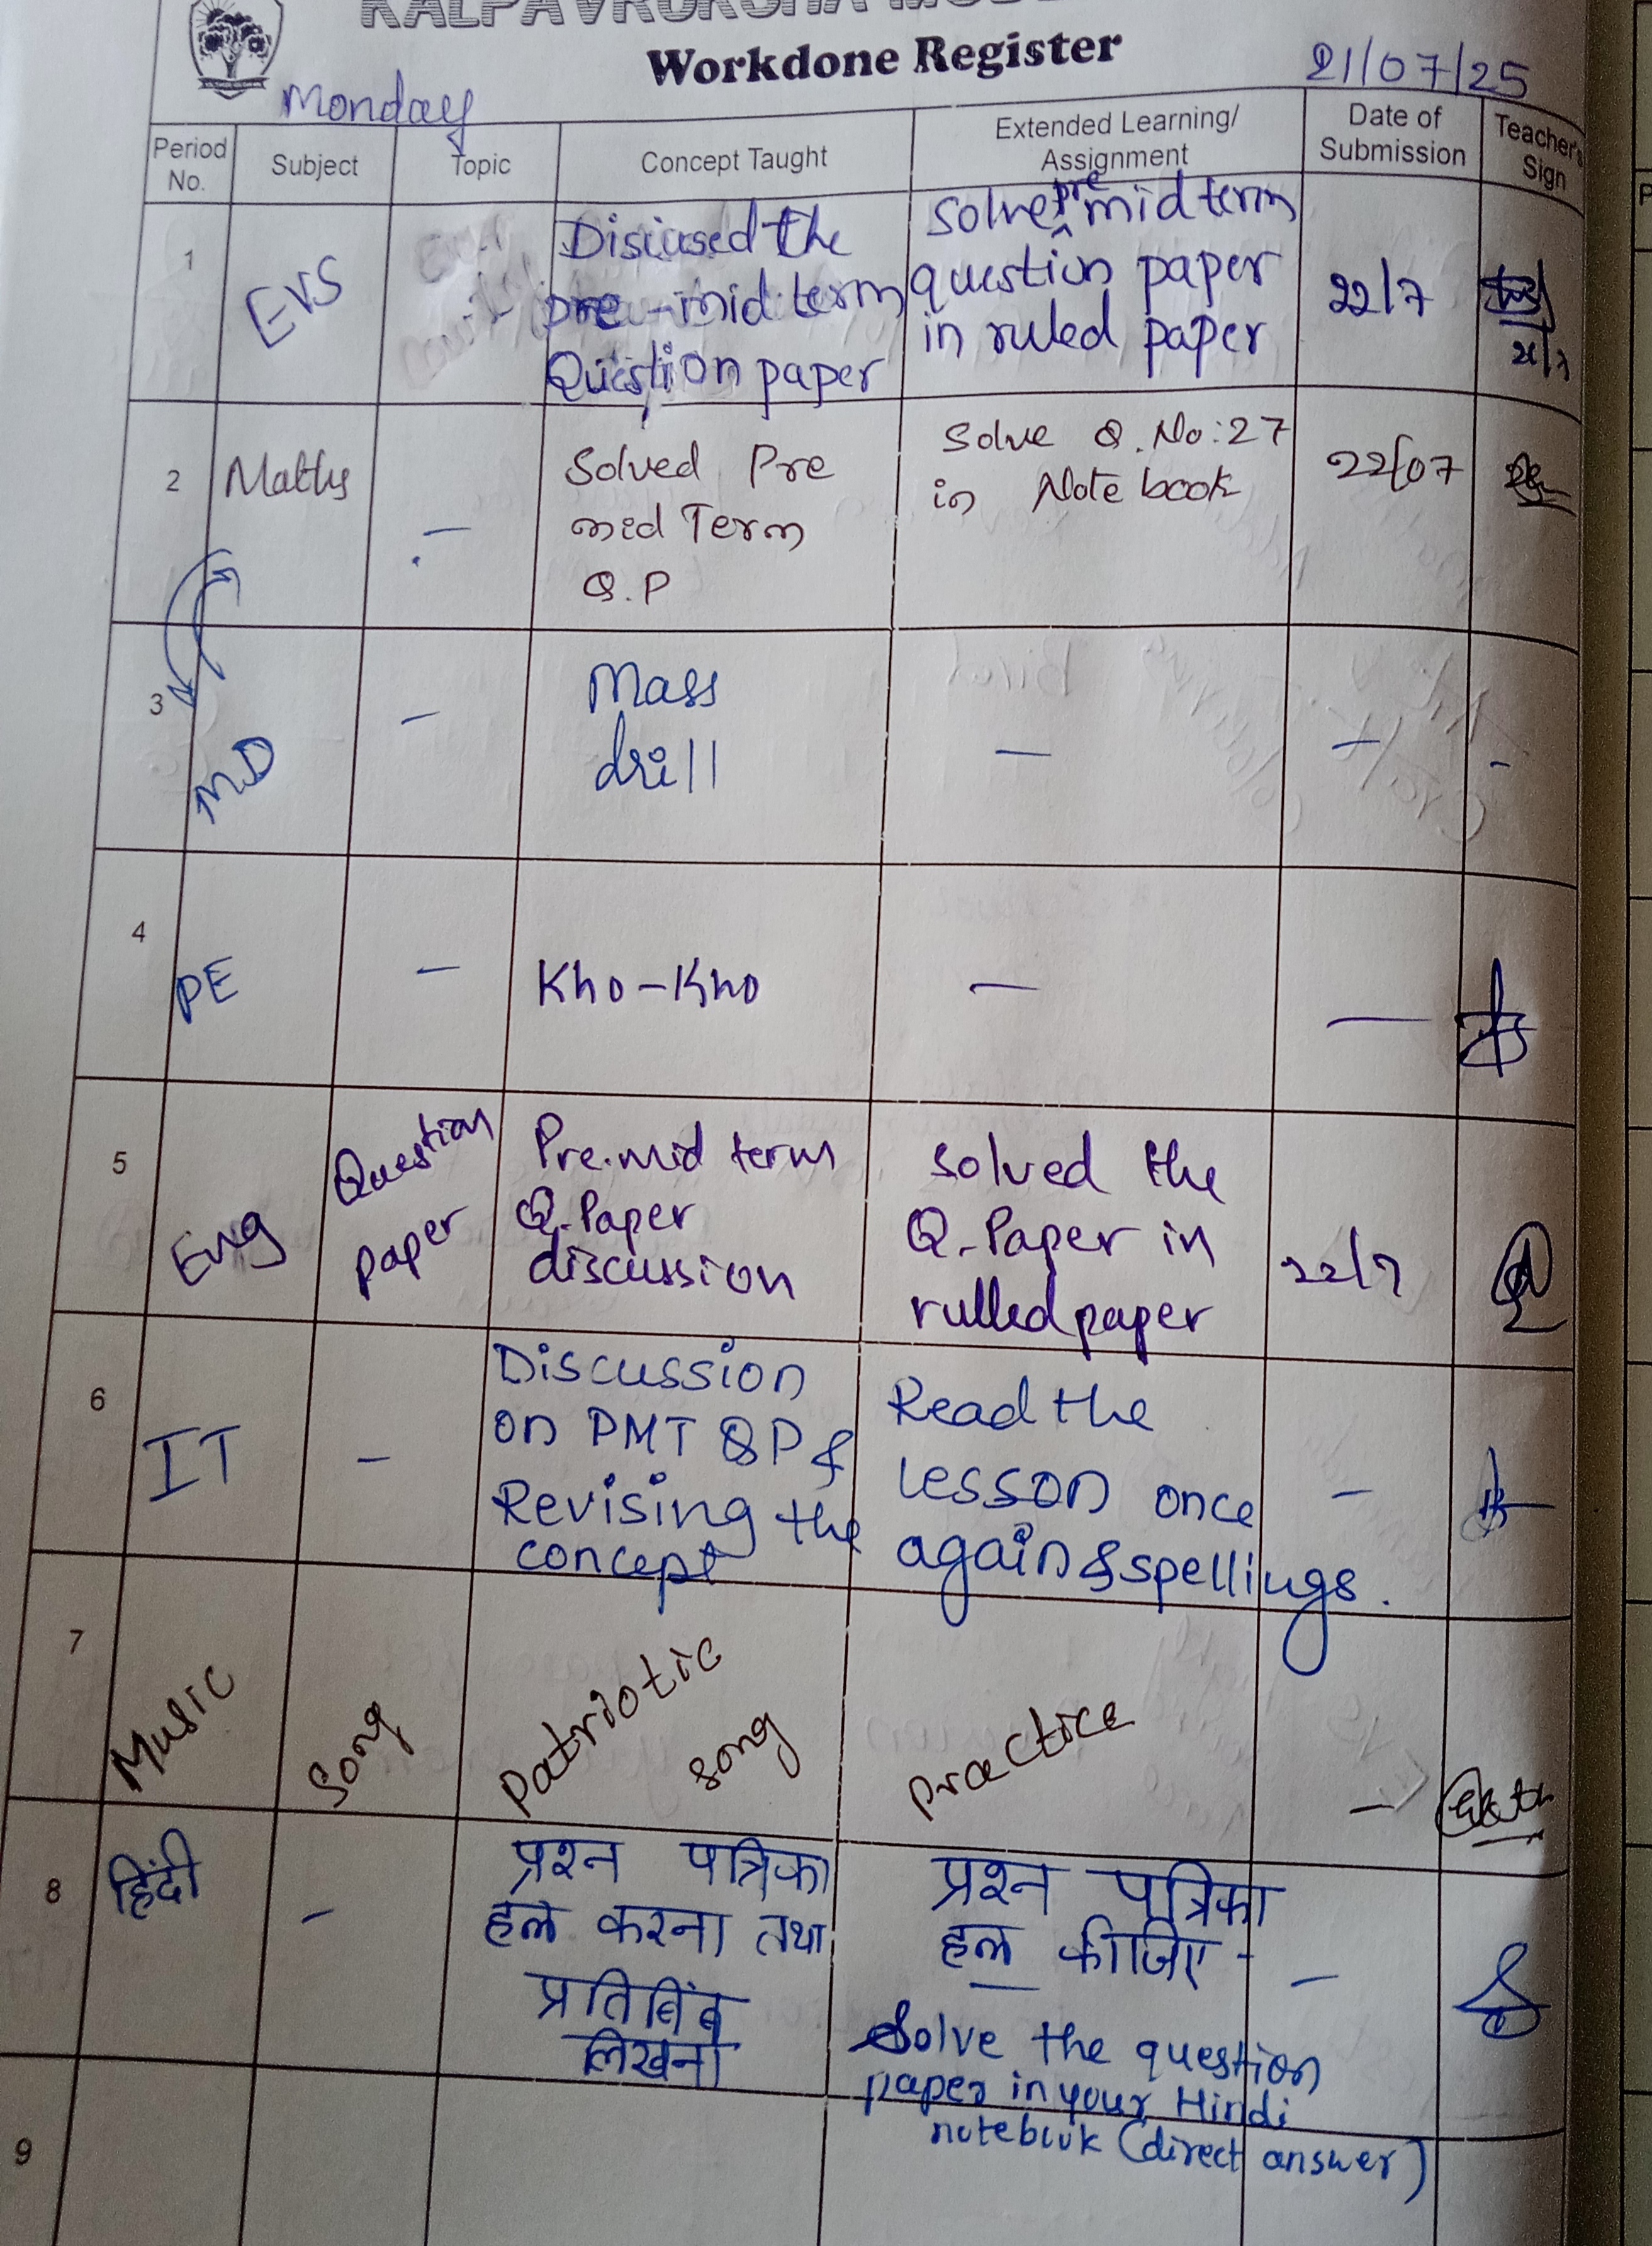 Workdone Register
Monday
21/07/25
Period No.
Subject
Topic
Concept Taught
Extended Learning/
Assignment
Date of
Submission
Teacher's
Sign
1
EVS
Disicused the
pre-mid term
Question paper
Solve pre mid term
question paper
in ruled paper
22/7
21/7
2
Maths
-
Solved Pre
mid Term
Q.P
Solve Q.No:27
in Note book
22/07
3
MD
-
Mass
drill
-
-
-
4
PE
-
Kho-Kho
-
-
5
Eng
Question
paper
Pre.mid term
Q.Paper
discussion
solved the
Q.Paper in
rulled paper
22/7
6
IT
-
Discussion
on PMT QP &
Revising the
concept
Read the
lesson once
again & spellings.
-
7
Music
Song
Patriotic
song
practice
-
8
हिंदी
-
प्रश्न पत्रिका
हल करना तथा
प्रतिबिंब
लिखना
प्रश्न पत्रिका
हल कीजिए -
-
Solve the question
paper in your Hindi
notebook (direct answer)
9